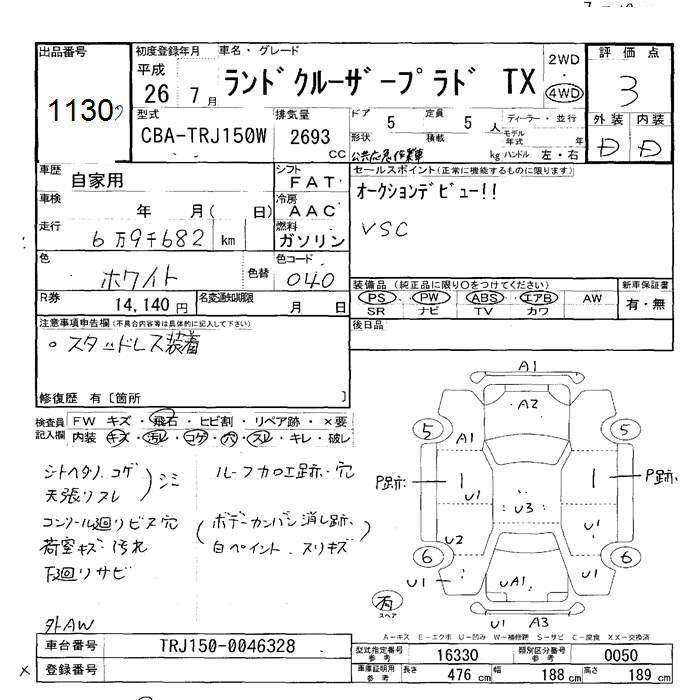 出品番号 初度登録年月 車名・グレード 2WD 評価点
1130 平成 26 7月 ランドクルーザープラド TX ・ 4WD 3
型式 排気量 ドア 5 定員 5人 ディーラー・並行 外装 内装
CBA-TRJ150W 2693 CC 形状 積載 kg モデル年式 年 ハンドル 左・右 D D
公共応急作業車
車歴 自家用 シフト FAT セールスポイント(正常に機能するものに限ります)
車検 年 月( 日) 冷房 AAC オークションデビュー!!
走行 6万9千682 km 燃料 ガソリン VSC
色 ホワイト 色替 色コード 040
装備品(純正品に限り○をつけてください) 新車保証書
R券 14,140円 名変通知期限 月 日 PS PW ABS エアB AW 有・無
SR ナビ TV カワ
注意事項申告欄(不具合内容等は具体的に記入して下さい) 後日品
○スタッドレス装着
修復歴 有[箇所 ]
検査員記入欄 FW キズ・飛石・ヒビ割・リペア跡・×要
内装 キズ・汚レ・コゲ・穴・スレ・キレ・破レ
シートヘタリ.コゲ
天張リスレ
シミ
ルーフカロエ跡・穴
コンソール廻リビス穴
荷室キズ・汚れ
下廻リサビ
ボデーカンバン消し跡.
白ペイント.スリキズ
外AW
A1
A2
5 A1 5
P跡 U1 U3 U1 P跡
U2
6 6
U1 UA1
有
スペア
U1 A3
A-キズ E-エクボ U-凹み W-補修跡 S-サビ C-腐食 XX-交換済
車台番号 TRJ150-0046328 型式指定番号 参考 16330 類別区分番号 参考 0050
登録番号 車庫証明用 参考 長さ 476 cm 幅 188 cm 高さ 189 cm
x